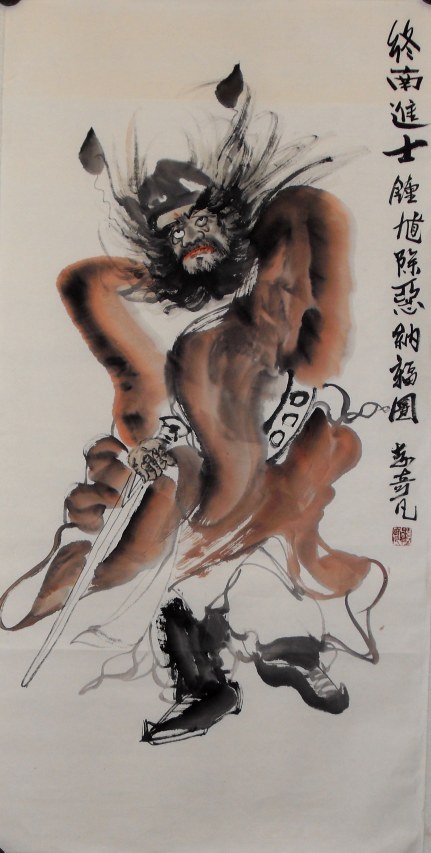 終南進士鍾馗除惡納福圖
奇凡